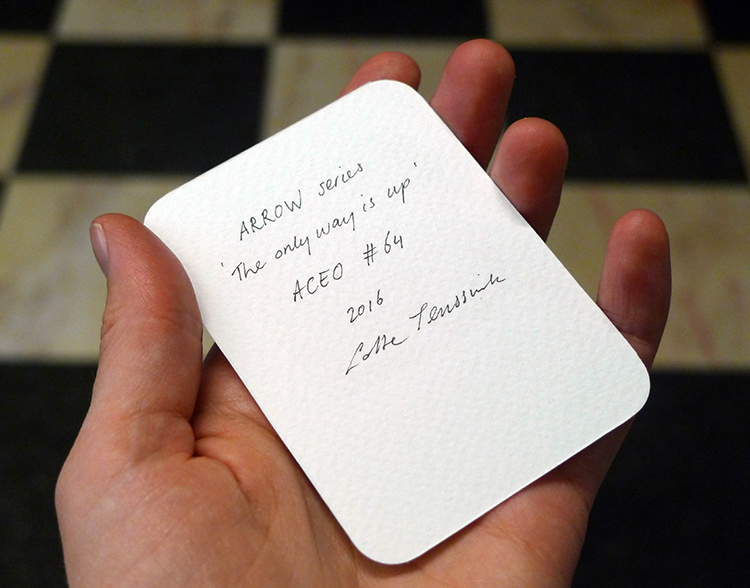 ARROW series
'The only way is up'
ACEO #64
2016
Lotte Teussink